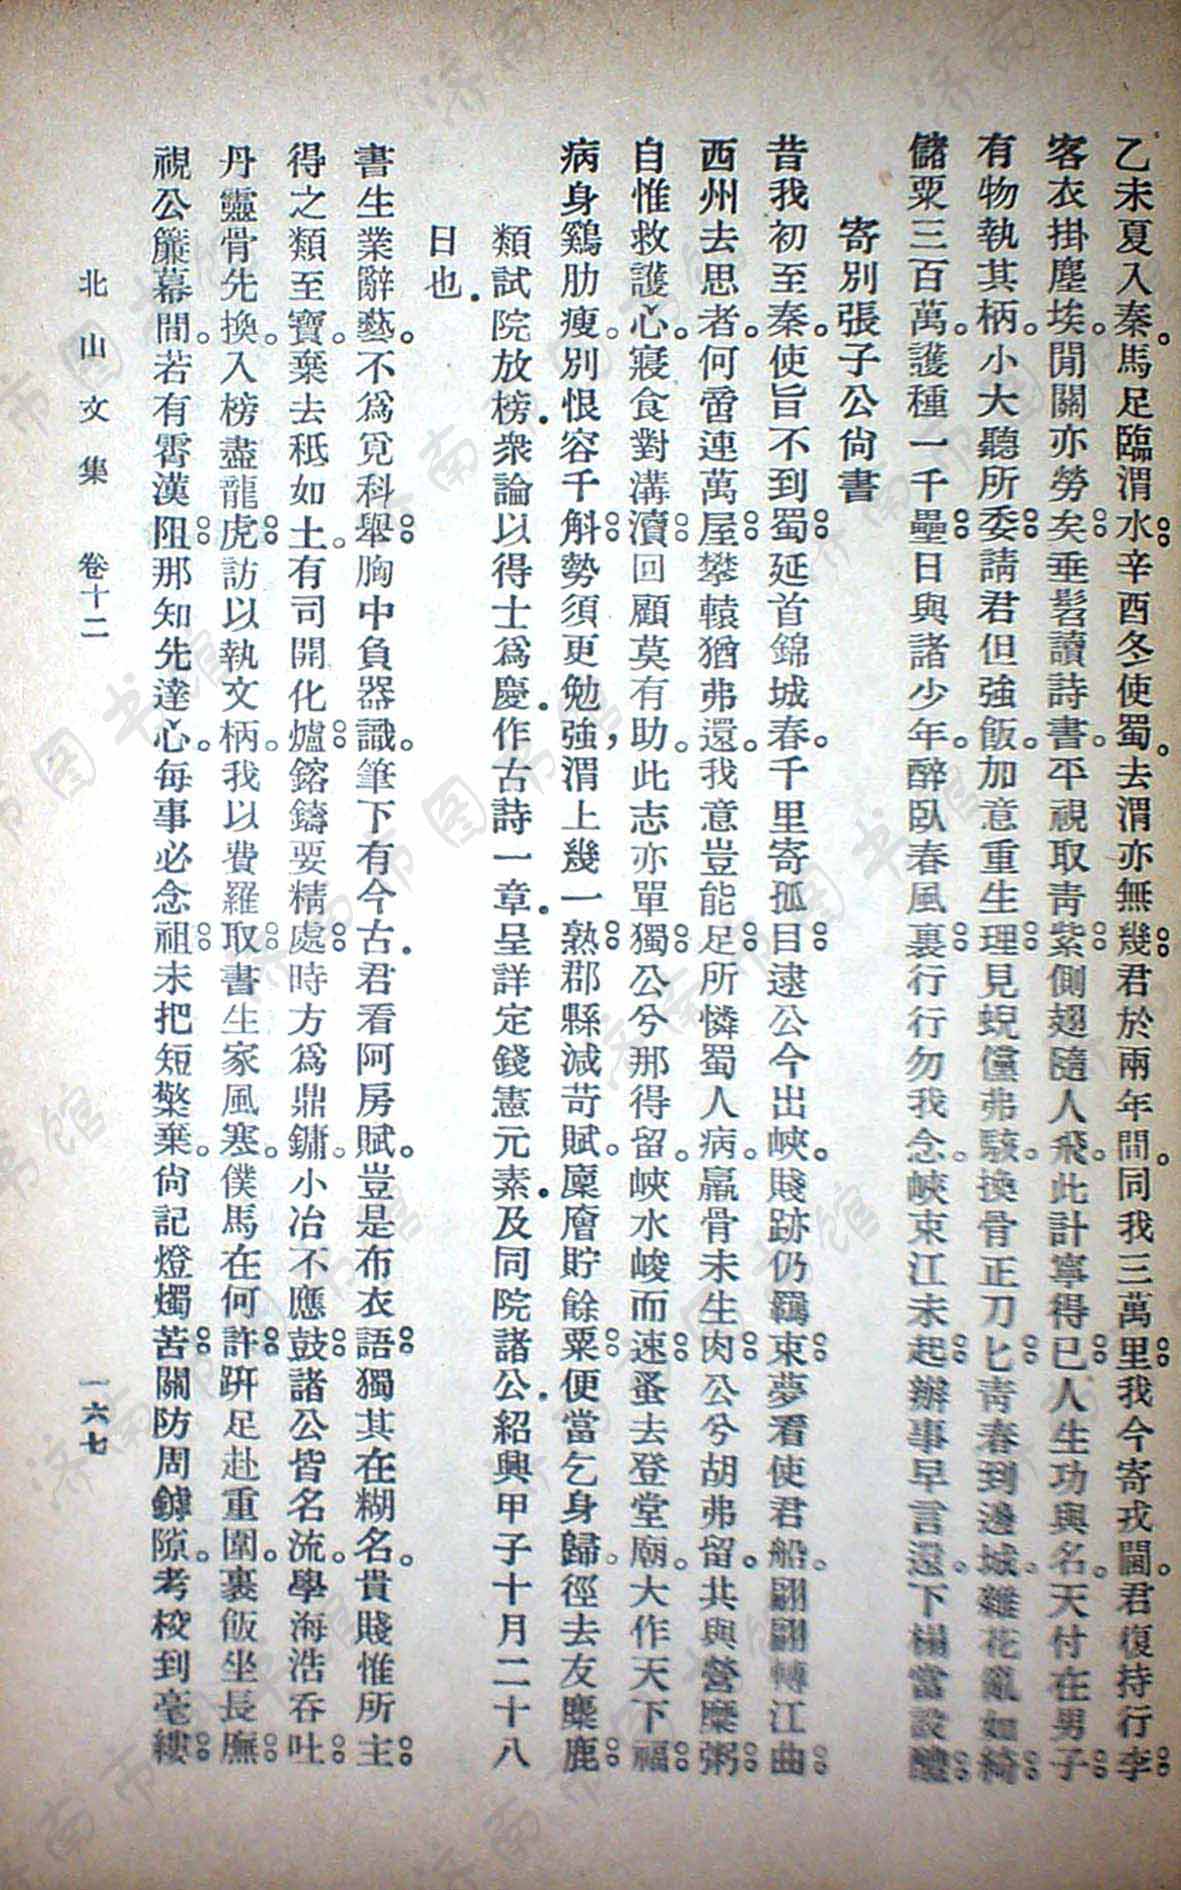 乙未夏入秦。馬足臨渭水。。辛酉冬使蜀。去渭亦無幾。。君於兩年間。同我三萬里。。我今寄戎閫。君復持行李。。
客衣掛塵埃。閒關亦勞矣。。垂髫讀詩書。平視取靑紫。。側翅隨人飛。此計寧得已。。人生功與名。天付在男子。。
有物執其柄。小大聽所委。。請君但強飯。加意重生理。。見蜺儻弗駭。換骨正刀匕。。靑春到邊城。雜花亂如綺。。
儲粟三百萬。護種一千壘。。日與諸少年。醉臥春風裏。。行行勿我念。峽束江未起。。辦事早言還。下榻當設醴。。
寄別張子公尙書
昔我初至秦。使旨不到蜀。。延首錦城春。千里寄孤目。。逮公今出峽。賤跡仍羈束。。夢看使君船。翩翩轉江曲。。
西州去思者。何啻連萬屋。。攀轅猶弗還。我意豈能足。。所憐蜀人病。羸骨未生肉。。公兮胡弗留。共與營糜粥。。
自惟救護心。寢食對溝瀆。。回顧莫有助。此志亦單獨。。公兮那得留。峽水峻而速。。蚤去登堂廟。大作天下福。。
病身鷄肋瘦。別恨容千斛。。勢須更勉強，渭上幾一熟。。郡縣減苛賦。廩廥貯餘粟。。便當乞身歸。徑去友麋鹿。。
類試院放榜.衆論以得士爲慶.作古詩一章.呈詳定錢憲元素.及同院諸公.紹興甲子十月二十八
日也.
書生業辭藝。不爲覓科舉。。胸中負器識。筆下有今古.君看阿房賦。豈是布衣語。。獨其在糊名。貴賤惟所主。。
得之類至寶。棄去秪如土。有司開化爐。。鎔鑄要精處。。時方爲鼎鏞。小冶不應鼓。。諸公皆名流。學海浩吞吐。。
丹靈骨先換。入榜盡龍虎。。訪以執文柄。我以費羅取。。書生家風寒。僕馬在何許。。趼足赴重圍。裹飯坐長廡。。
視公簾幕間。若有霄漢阻。。那知先達心。每事必念祖。。未把短檠棄。尙記燈燭苦。。關防周罅隙。考校到毫縷。。
北山文集　卷十二　一六七